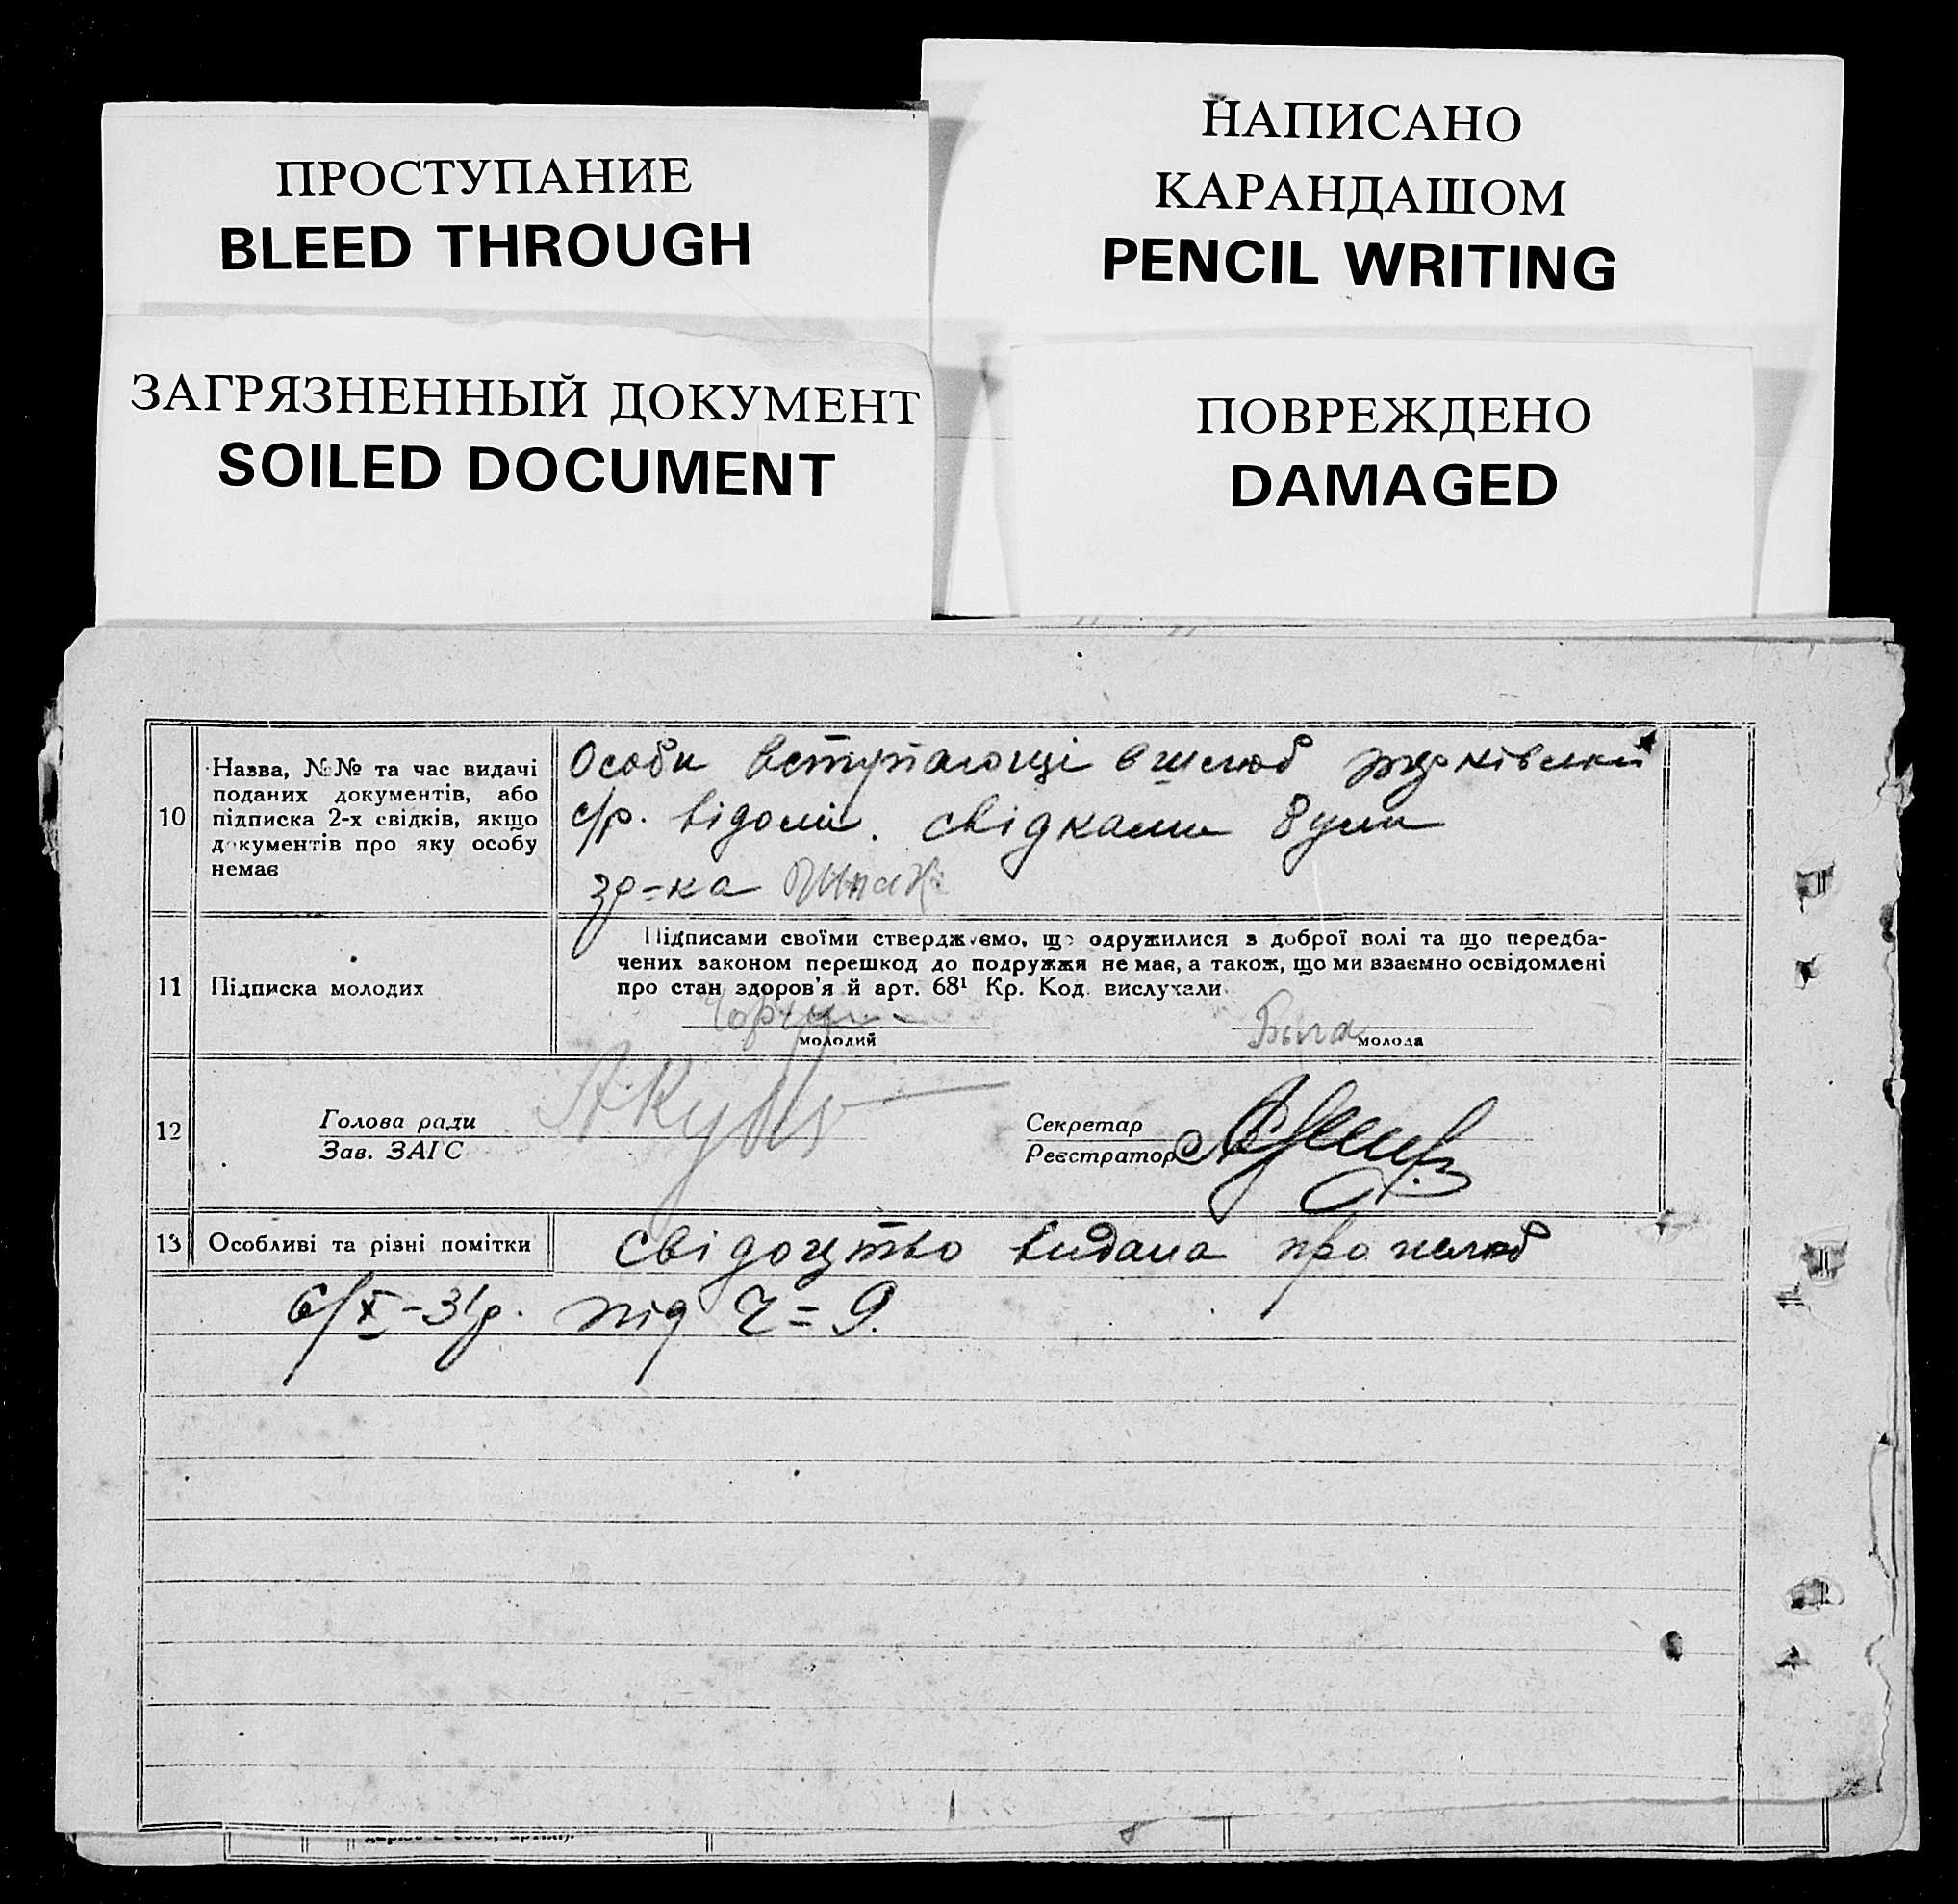 ПРОСТУПАНИЕ
BLEED THROUGH
НАПИСАНО
КАРАНДАШОМ
PENCIL WRITING
ЗАГРЯЗНЕННЫЙ ДОКУМЕНТ
SOILED DOCUMENT
ПОВРЕЖДЕНО
DAMAGED
10
Назва, №№ та час видачі
поданих документів, або
підписка 2-х свідків, якщо
документів про яку особу
немає
Особи вступающі в шлюб
с/р. відомі. свідками були
гр-ка
11
Підписка молодих
Підписами своїми стверджуємо, що одружилися з доброї волі та що передба-
чених законом перешкод до подружжя не має, а також, що ми взаємно освідомлені
про стан здоров'я й арт. 68¹ Кр. Код. вислухали
молодий
молода
12
Голова ради
Зав. ЗАГС
Секретар
Реєстратор
13
Особливі та різні помітки
свідоцтво видана про шлюб
6/X-31р. під Ч=9.